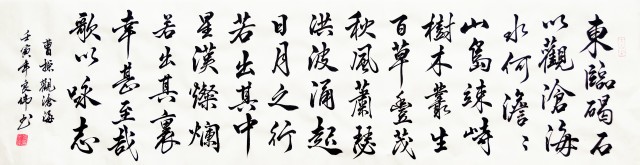 東臨碣石
以觀滄海
水何澹々
山島竦峙
樹木叢生
百草豐茂
秋風蕭瑟
洪波涌起
日月之行
若出其中
星漢燦爛
若出其裏
幸甚至哉
歌以咏志
曹操觀滄海
壬寅年